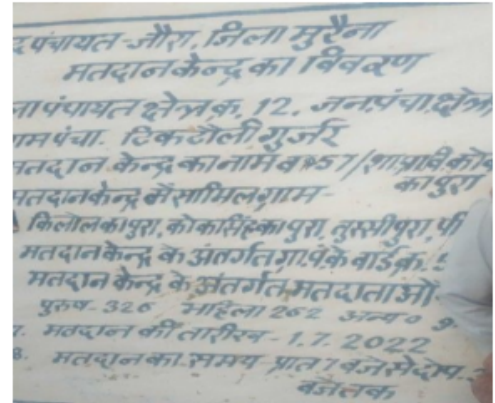 द पंचायत-जौरा, जिला मुरैना
मतदान केन्द्र का विवरण
ला पंचायत क्षेत्र क्र. 12. जन.पंचा.क्षेत्र
ाम पंचा. टिकटौली गुर्जर
मतदान केन्द्र का नाम व क्र 57/शा.प्रा.वि.कोक
का पुरा
मतदान केन्द्र में सामिल ग्राम-
किलोल का पुरा, कोकसिंह का पुरा, तुस्सीपुरा, पी
मतदान केन्द्र के अंतर्गत ग्रा.पं.के वार्ड क्र.
मतदान केन्द्र के अंतर्गत मतदाताओं
पुरुष- 326 महिला 262 अन्य 0
7. मतदान की तारीख - 1.7.2022
8. मतदान का समय प्रात 7 बजे से दोप.
बजे तक